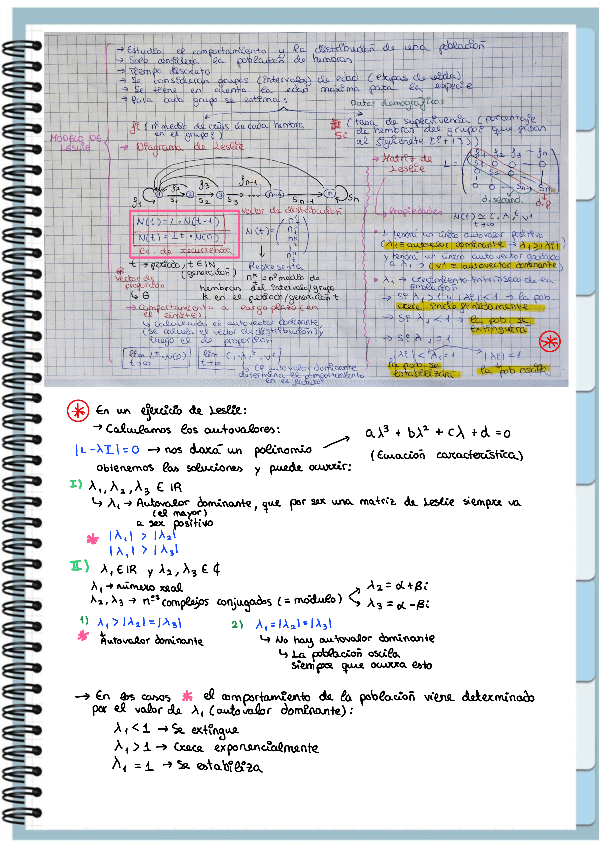 → Estudia el comportamiento y la distribución de una población
→ Solo considera la población de hembras
→ Tiempo discreto
→ Se consideran grupos (intervalos) de edad (etapas de vida)
→ Se tiene en cuenta la edad máxima para la especie
→ Para cada grupo se estima:
Datos demográficos
fi (nº medio de crías de cada hembra en el grupo i)
Si (tasa de supervivencia (porcentaje de hembras del grupo i que pasan al siguiente [i+1]))
MODELO DE LESLIE
→ Diagrama de Leslie
→ Matriz de Leslie
L =
N(t) = L · N(t-1)
N(t) = L^t · N(0)
Ec. de recurrencia
Vector de distribución
N(t) =
t → período, t ∈ IN (generación)
Representa
nº medio de hembras del intervalo/grupo k en el período/generación t
Vector de proporción
→ Comportamiento a largo plazo (en el límite)
↳ Calculamos el autovector dominante
lím L^t · N(0)
t→∞
↳ El autovector dominante determina el comportamiento en el futuro
→ Propiedades
L tendrá un único autovalor positivo
(λ1 = autovalor dominante → λ1 ≥ |λi|)
y tendrá un único autovector asociado a λ1 (v¹ = autovector dominante)
λ1 → crecimiento intrínseco de la población
→ Si λ1 > 1 → la pob. crece
→ Si λ1 < 1 → la pob. se extinguirá
→ Si λ1 = 1
la pob. se estabilizará
la pob. oscila
* En un ejercicio de Leslie:
→ Calculamos los autovalores:
|L - λI| = 0 → nos dará un polinomio → aλ³ + bλ² + cλ + d = 0
obtenemos las soluciones y puede ocurrir: (Ecuación característica)
I) λ1, λ2, λ3 ∈ IR
↳ λ1 → Autovalor dominante, que por ser una matriz de Leslie siempre va
(el mayor)
a ser positivo
* |λ1| > |λ2|
|λ1| > |λ3|
II) λ1 ∈ IR y λ2, λ3 ∈ ₵
λ1 → número real
λ2, λ3 → nºs complejos conjugados (= módulo)
λ2 = α + βi
λ3 = α - βi
1) λ1 > |λ2| = |λ3|
* Autovalor dominante
2) λ1 = |λ2| = |λ3|
↳ No hay autovalor dominante
↳ La población oscila
siempre que ocurra esto
→ En los casos * el comportamiento de la población viene determinado
por el valor de λ1 (autovalor dominante):
λ1 < 1 → Se extingue
λ1 > 1 → Crece exponencialmente
λ1 = 1 → Se estabiliza